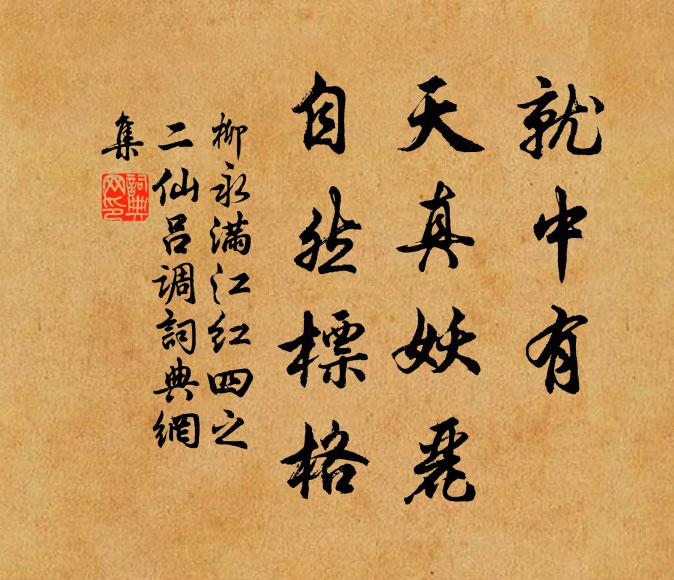 就中有
天真妖麗
自然標格
柳永满江红四之
二仙吕调詞典網
集
詞典網印